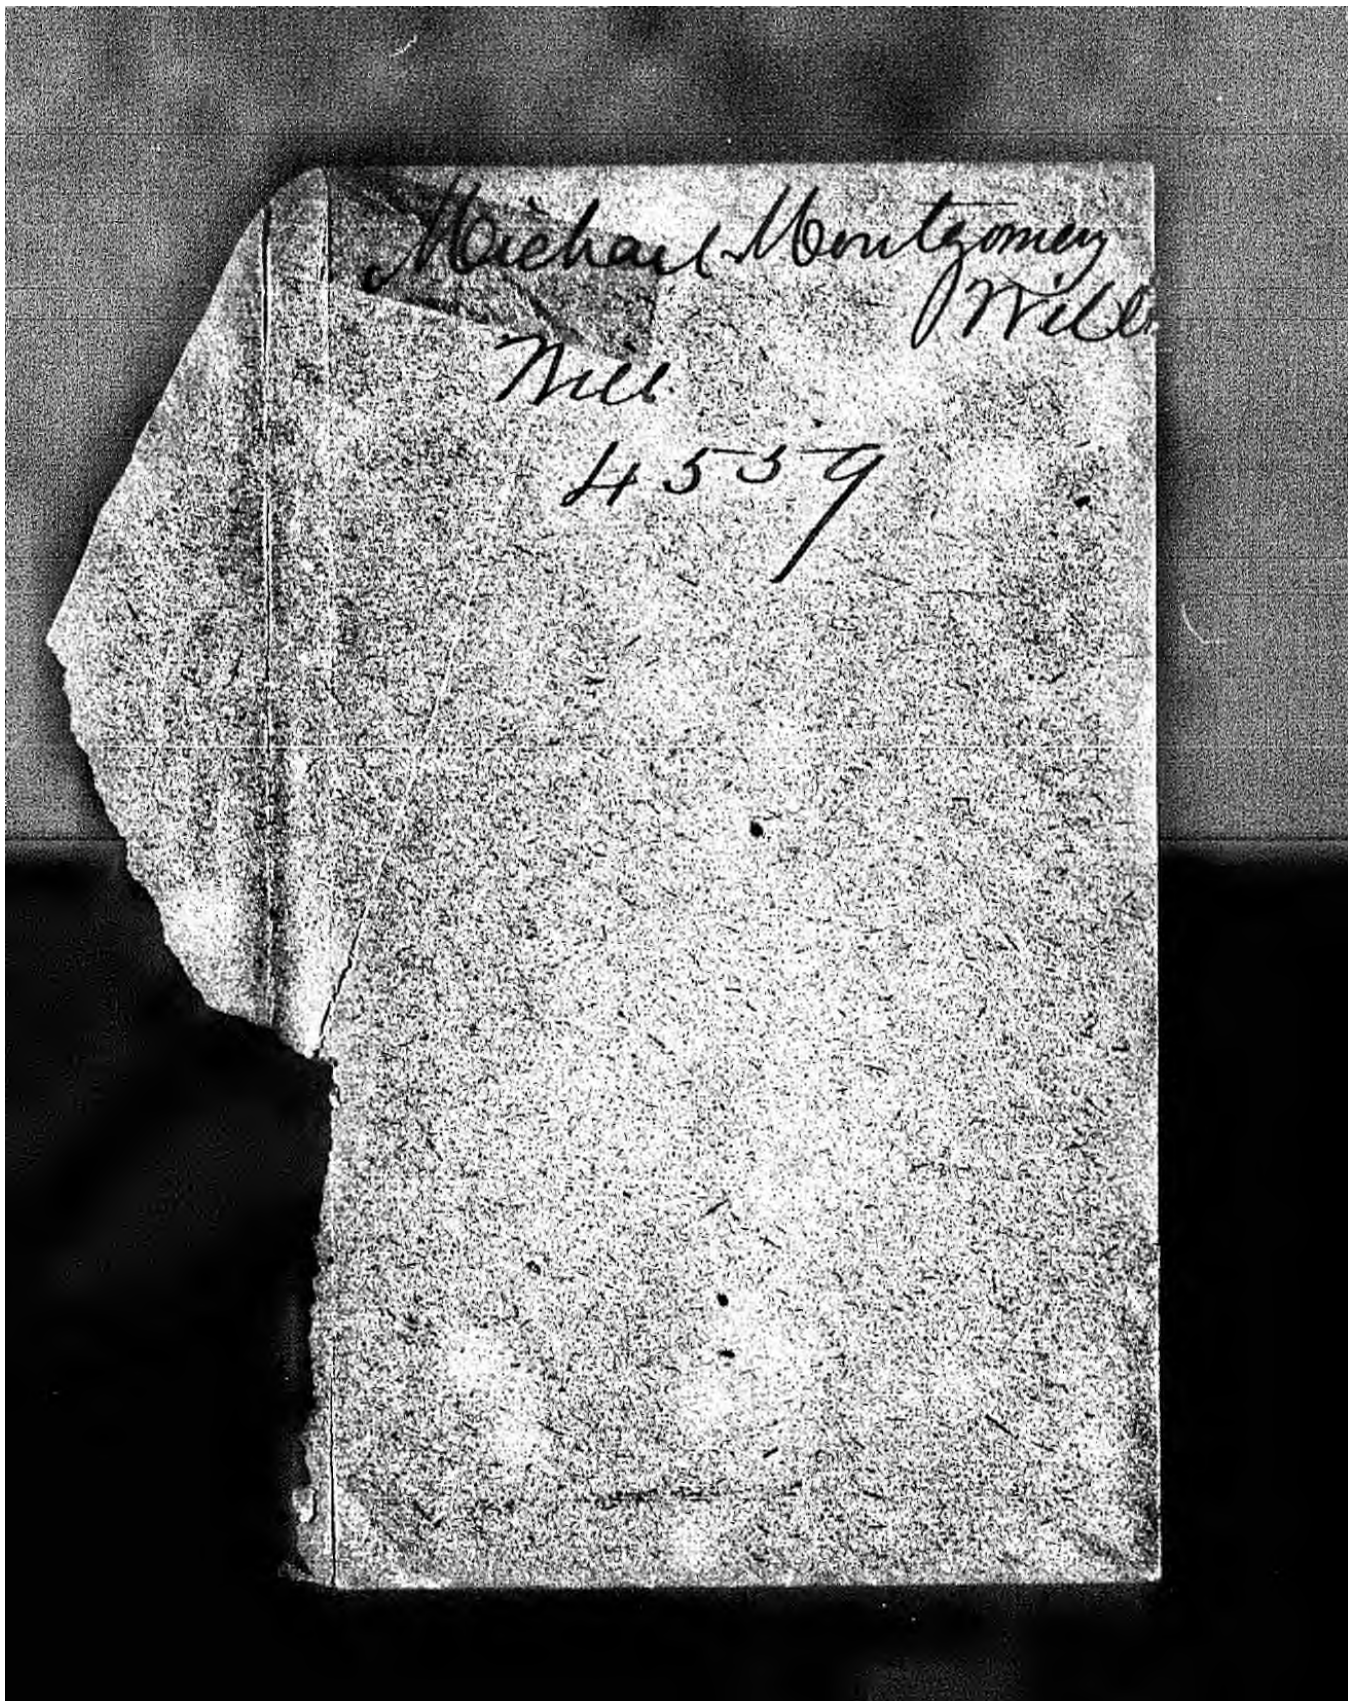 Michael Montgomery
Will
Will
4559